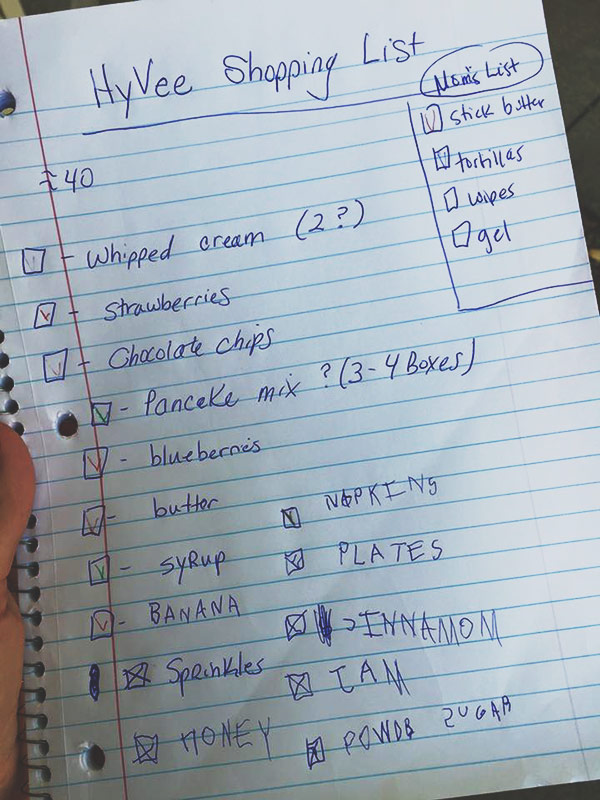 HyVee Shopping List
Nom's List
stick butter
tortillas
wipes
gel
≈ 40
- Whipped cream (2?)
- Strawberries
- Chocolate chips
- Panceke mix ? (3-4 Boxes)
- blueberries
- butter
NAPKINS
- SYRup
PLATES
- BANANA
CINNAMON
Sprinkles
JAM
HONEY
POWDR SUGAR